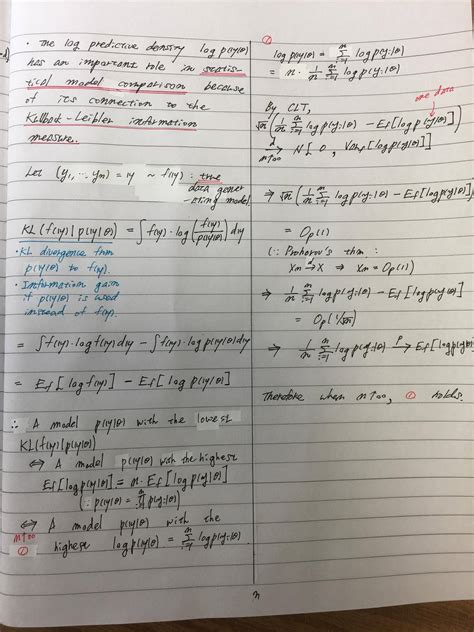 · The log predictive density log p(y|θ)
has an important role in statis-
tical model comparison because
of its connection to the
Kullback-Leibler information
measure.
Let (y₁, ⋯ yₙ) = y ~ f(y) : true
data gener
-ating model
KL(f(y)|p(y|θ)) = ∫f(y)·log(f(y)/p(y|θ))dy
· KL divergence from
p(y|θ) to f(y).
· Information gain
if p(y|θ) is used
instead of f(y).
= ∫f(y)·log f(y)dy - ∫f(y)·log p(y|θ)dy
= E_f[log f(y)] - E_f[log p(y|θ)]
∴ A model p(y|θ) with the lowest
KL(f(y)|p(y|θ))
⇔ A model p(y|θ) with the highest
E_f[log p(y|θ)] = n·E_f[log p(yᵢ|θ)]
(∵ p(y|θ) = ∏ᵢ₌₁ⁿ p(yᵢ|θ))
⇔ A model p(y|θ) with the
n↑∞
① highest log p(y|θ) = Σᵢ₌₁ⁿ log p(yᵢ|θ)
①
log p(y|θ) = Σᵢ₌₁ⁿ log p(yᵢ|θ)
= n · 1/n Σᵢ₌₁ⁿ log p(yᵢ|θ)
one data
By CLT,
√n(1/n Σᵢ₌₁ⁿ log p(yᵢ|θ) - E_f[log p(yᵢ|θ)])
→ᵈ n↑∞ N[0, Var_f[log p(yᵢ|θ)]]
⇒ √n(1/n Σᵢ₌₁ⁿ log p(yᵢ|θ) - E_f[log p(yᵢ|θ)]
= Op(1)
(∵ Prohorov's thm :
Xn →ᵈ X ⇒ Xn = Op(1))
⇒ 1/n Σᵢ₌₁ⁿ log p(yᵢ|θ) - E_f[log p(yᵢ|θ)]
= Op(1/√n)
⇒ 1/n Σᵢ₌₁ⁿ log p(yᵢ|θ) →ᵖ E_f[log p(yᵢ
Therefore when n↑∞, ① holds.